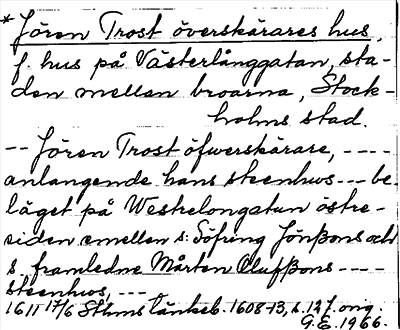 * Jören Trost överskärares hus,
f. hus på Västerlånggatan, sta-
den mellan broarna, Stock-
holms stad.
-- Jören Trost öfwerskärare, ----
anlangende hans steenhws --- be-
läget på Westrelongatun östre-
siden emellen s: Söfring Jönßons och
s. framledne Mårten Olufßons ----
steenhws, ---
1611 17/6 Sthms tänkeb. 1608-13, s. 12 f. orig.
G.E. 1966.